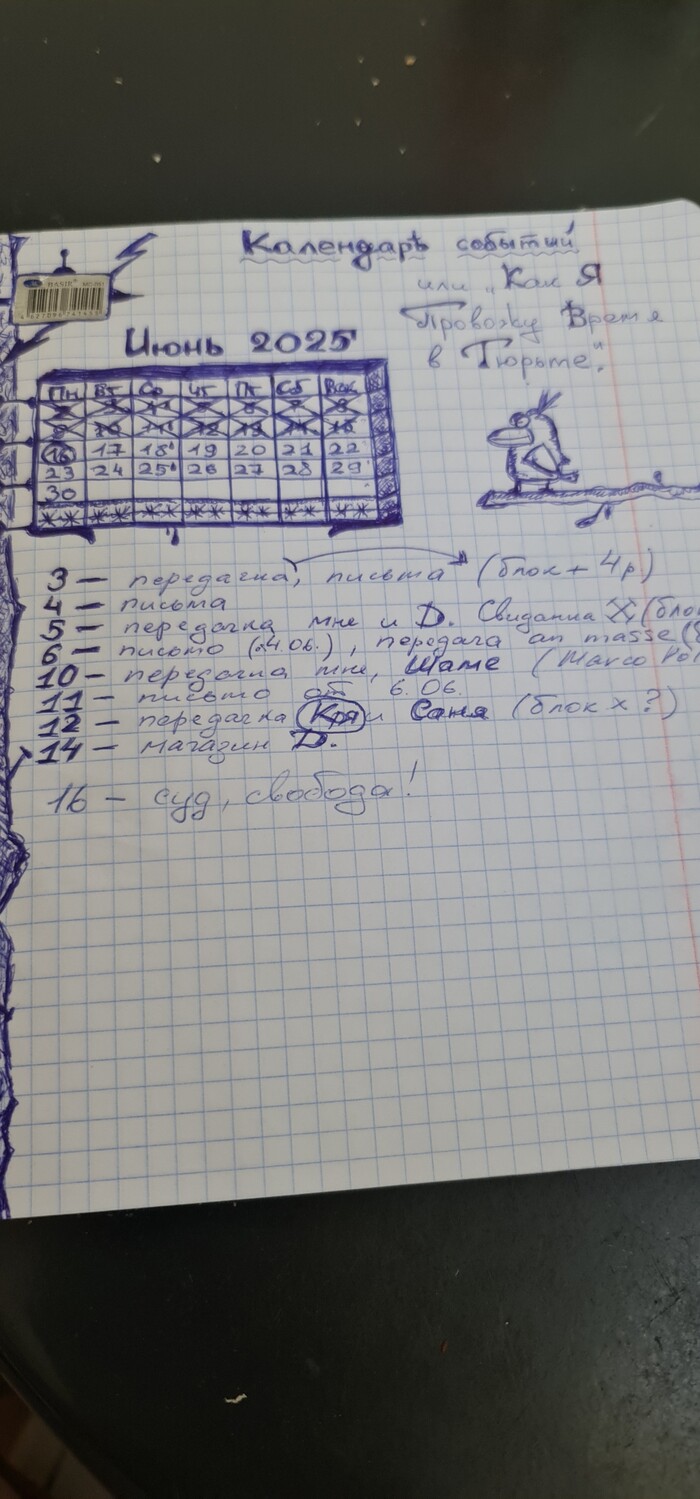 Календарь событий
или „Как Я
Провожу Время
в Тюрьме".
BASIR
Июнь 2025
Пн Вт Ср Чт Пт Сб Вск
16 17 18 19 20 21 22
23 24 25 26 27 28 29
30
3 — передачка, письма (блок + 4р)
4 — письма
5 — передачка мне и D. Свиданка
6 — письмо (4.06.), передача en masse
10 — передачка мне, Шаме (Marco
11 — письмо от 6.06.
12 — передачка Кря и Саня (блок х ?)
14 — магазин D.
16 — суд, свобода!